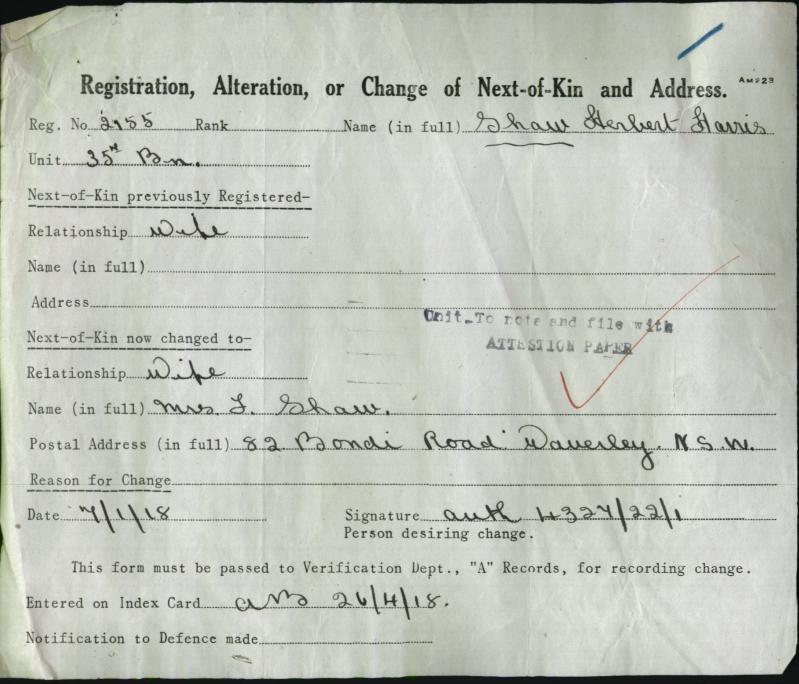 Registration, Alteration, or Change of Next-of-Kin and Address. AM223
Reg. No. 2155 Rank Name (in full) Shaw Herbert Harris
Unit 35th Bn.
Next-of-Kin previously Registered-
Relationship Wife
Name (in full)
Address
Unit-To note and file with
ATTESTION PAPER
Next-of-Kin now changed to-
Relationship Wife
Name (in full) Mrs L. Shaw.
Postal Address (in full) 82 Bondi Road Waverley. N.S.W.
Reason for Change
Date 7/1/18 Signature auth 4327/22/1
Person desiring change.
This form must be passed to Verification Dept., "A" Records, for recording change.
Entered on Index Card 26/4/18.
Notification to Defence made